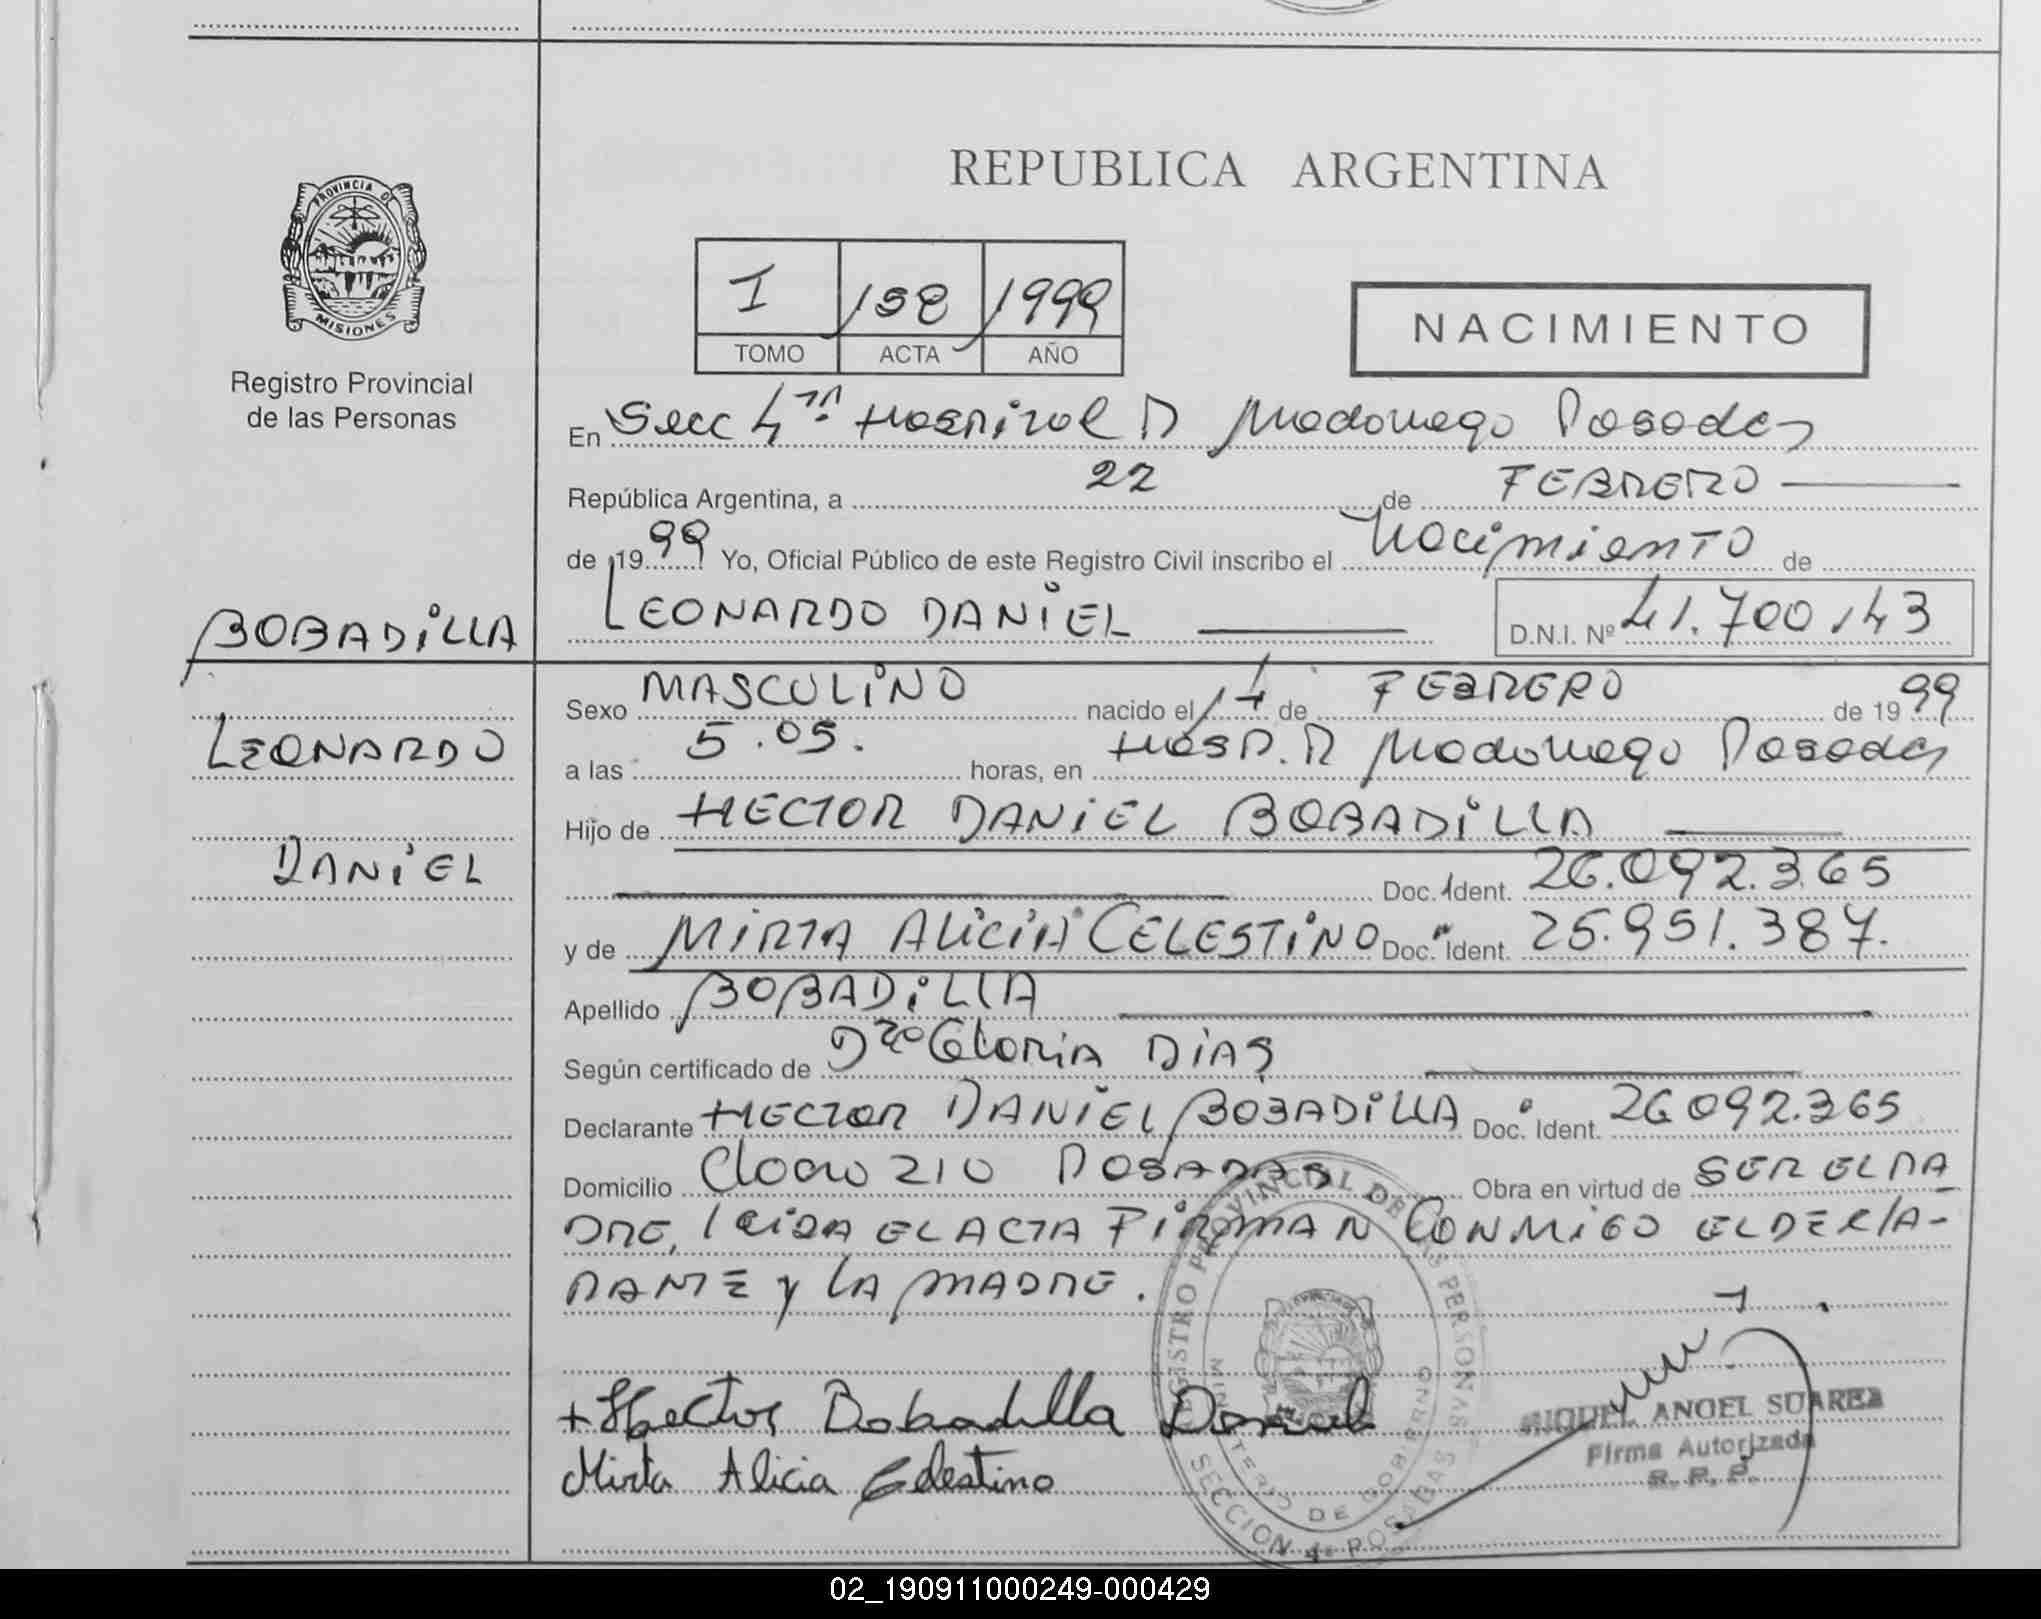 REPUBLICA ARGENTINA
PROVINCIA DE
MISIONES
Registro Provincial
de las Personas
I 158 1999
TOMO ACTA AÑO
NACIMIENTO
En Secc 4ta Hospital R Madariaga Posadas
República Argentina, a 22 de FEBRERO
de 1999 Yo, Oficial Público de este Registro Civil inscribo el Nacimiento de
BOBADILLA
LEONARDO DANIEL D.N.I. Nº 41.700.143
LEONARDO
DANIEL
Sexo MASCULINO nacido el 14 de FEBRERO de 1999
a las 5.05. horas, en HOSP. R Madariaga Posadas
Hijo de HECTOR DANIEL BOBADILLA
Doc. Ident. 26.092.365
y de MIRTA ALICIA CELESTINO Doc. Ident. 25.951.387.
Apellido BOBADILLA
Según certificado de Dra Gloria DIAS
Declarante HECTOR DANIEL BOBADILLA Doc. Ident. 26092.365
Domicilio 210 POSADAS Obra en virtud de SER EL PA
DRE, leida EL ACTA FIRMAN CONMIGO EL DECLA-
RANTE y LA MADRE.
+Hector Bobadilla Daniel
Mirta Alicia Celestino
REGISTRO PROVINCIAL DE LAS PERSONAS
MINISTERIO DE GOBIERNO
SECCION 4ª POSADAS
MIGUEL ANGEL SUAREZ
Firma Autorizada
R. P. P.
02_190911000249-000429